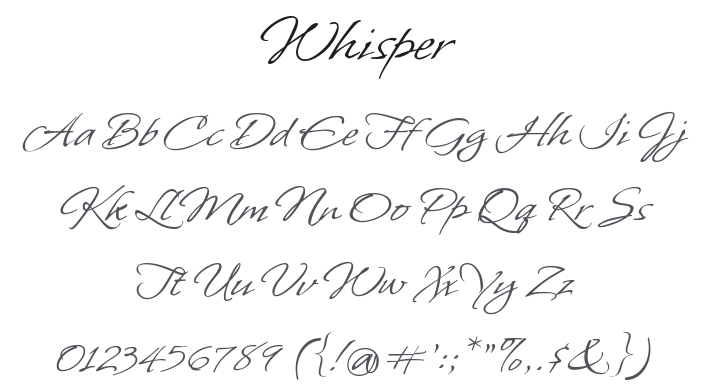 Whisper
Aa Bb Cc Dd Ee Ff Gg Hh Ii Jj
Kk Ll Mm Nn Oo Pp Qq Rr Ss
Tt Uu Vv Ww Xx Yy Zz
0123456789 ({!@#':;*"%,.$&})